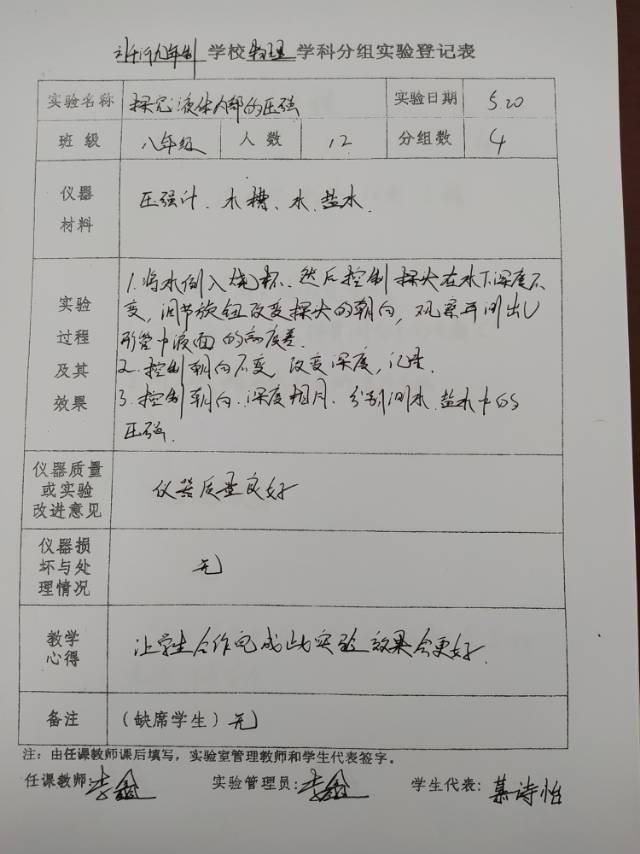 九年制 学校 物理 学科分组实验登记表
实验名称 探究液体内部的压强 实验日期 5.20
班级 八年级 人数 12 分组数 4
仪器材料 压强计、水槽、水、盐水.
实验过程及其效果
1.将水倒入烧杯、然后控制探头在水下深度不
变,调节旋钮改变探头的朝向,观察并测出U
形管中液面的高度差.
2.控制朝向不变,改变深度,记录.
3.控制朝向、深度相同、分别测水、盐水中的
压强.
仪器质量或实验改进意见 仪器质量良好
仪器损坏与处理情况 无
教学心得 让学生合作完成此实验效果会更好.
备注 (缺席学生)无
注:由任课教师课后填写,实验室管理教师和学生代表签字。
任课教师 李鑫 实验管理员: 李鑫 学生代表: 慕诗怡